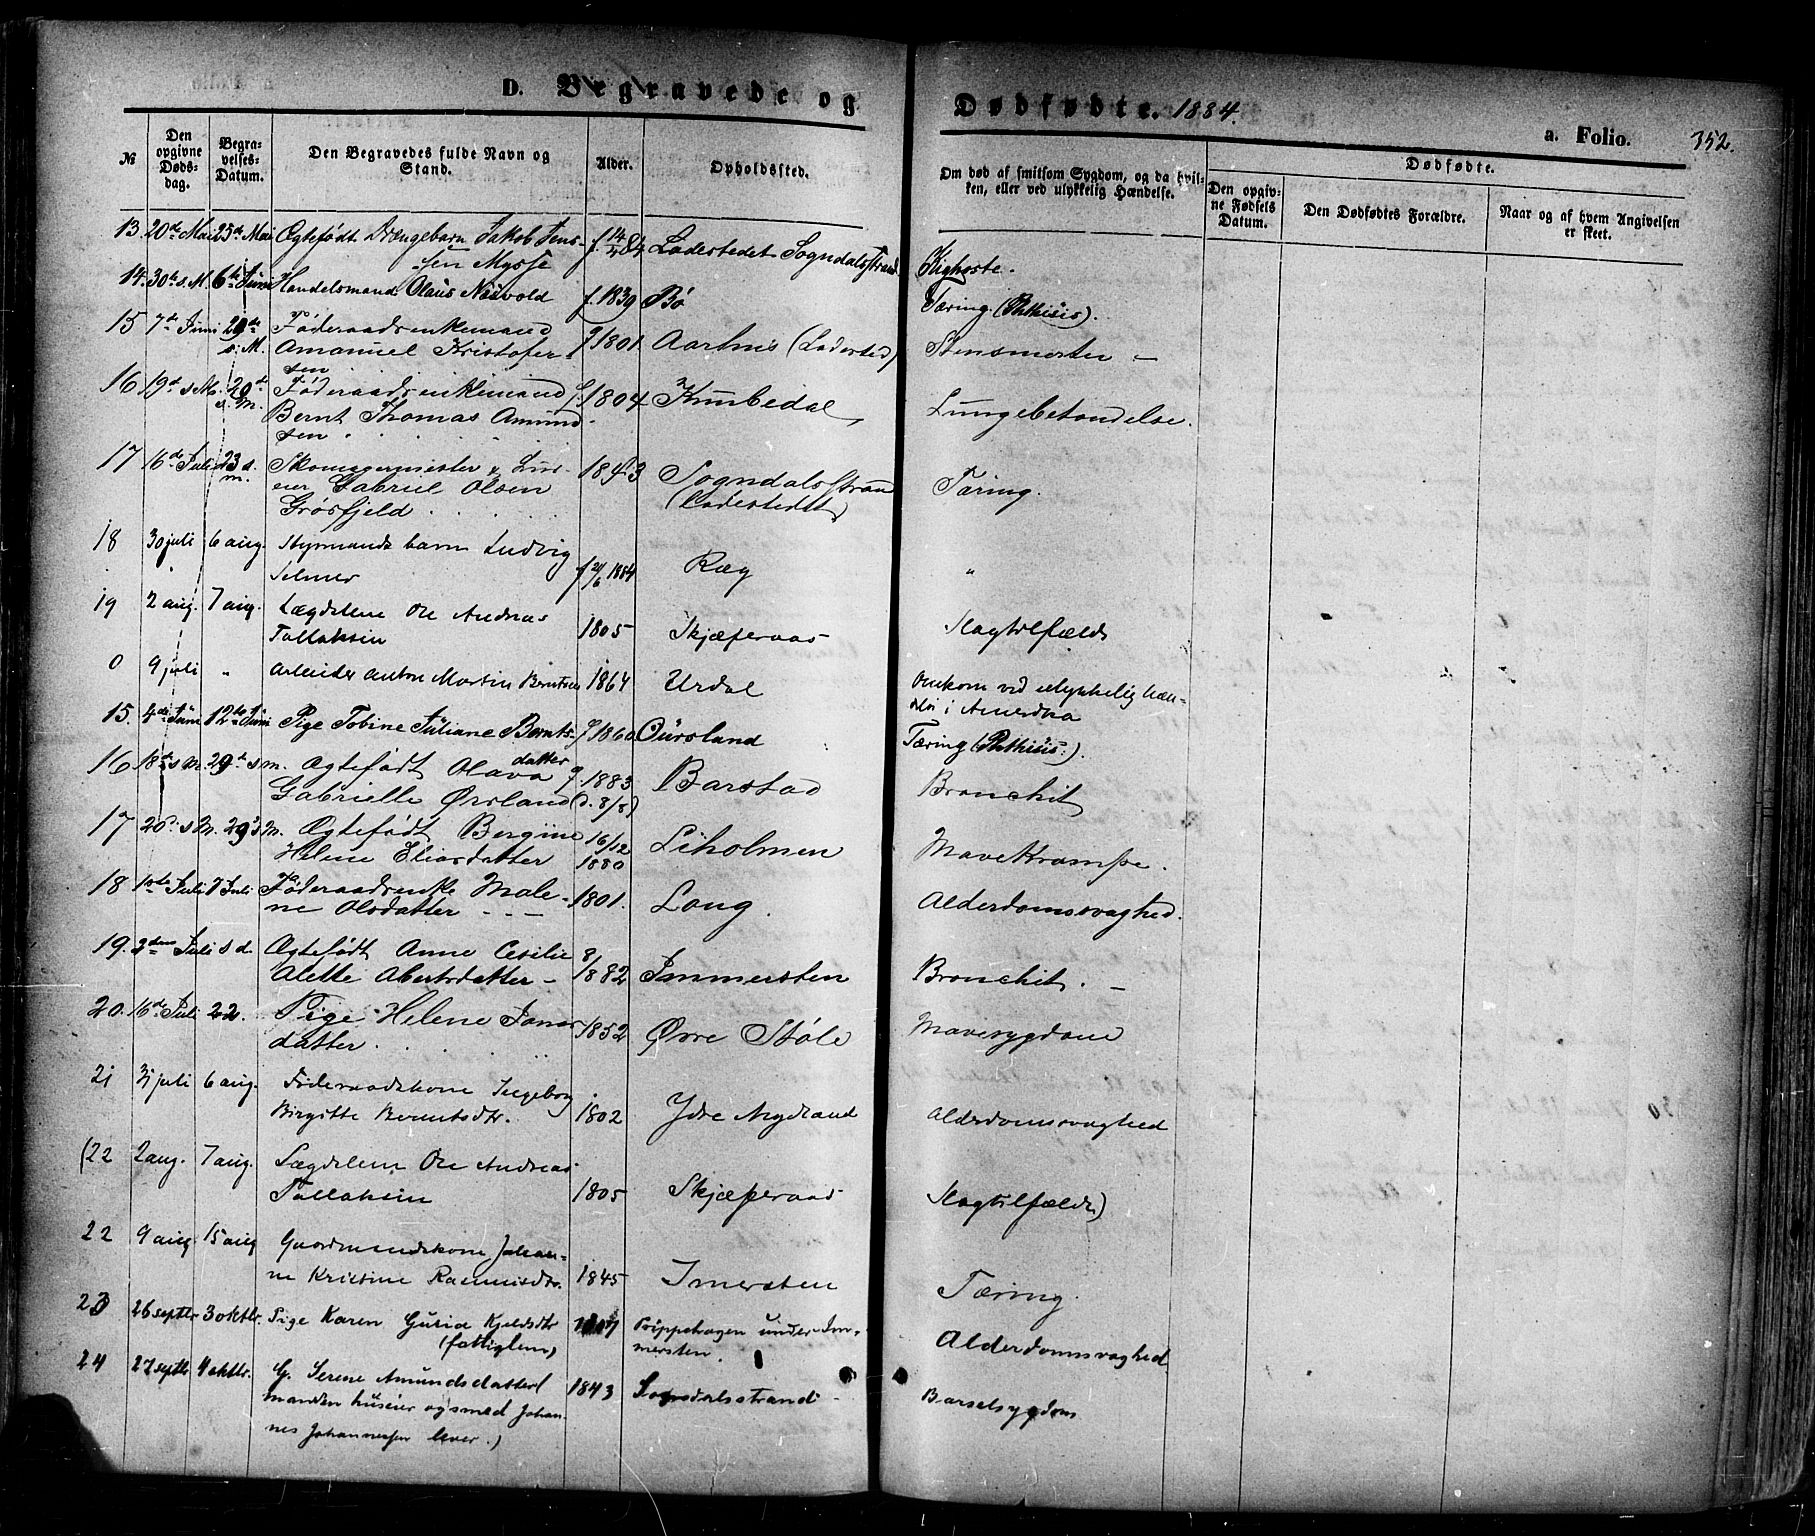 D. Begravede og
Dødfødte. 1884.
a. Folio. 352.
№
Den opgivne Dødsdag.
Begravelses-Datum.
Den Begravedes fulde Navn og Stand.
Alder.
Opholdssted.
Om død af smitsom Sygdom, og da hvilken, eller ved ulykkelig Hændelse.
Dødfødte.
Den opgivne Fødsels Datum.
Den Dødfødtes Forældre.
Naar og af hvem Angivelsen er skeet.
13. 20de Mai 25de Mai Ægtefødt Drengebarn Jakob Jens- f. 14/4 84 Ladestedet Sogndalsstrand Kighoste.
sen Mysse
14. 30te s. M. 6te Juni Handelsmand Olaus Næsvold f. 1839 Bø Tæring (Phthisis).
15 7de Juni 29de s. M. Føderaadsenkemand
Amanuel Kristofer- f 1801. (Ladested) Stensmerter —
sen
16 19de s M. 20de s. M. Føderaadsenkemand f. 1804 Knubedal Lungebetændelse.
Bernt Thomas Amund-
sen
17 16de Juli 23 s. m. Skomagermester & Hus- 1843 Sogndalsstrand Tæring.
eier Gabriel Olsen (Ladestedet)
Grøsfjeld
18 30 juli 6 aug. Styrmands barn Ludvig
Selmer f 21/6 1884 Ræg "
19 2 aug. 7 aug. Lægdslem Ole Andreas
Tollaksen 1805 Skjæperaas Slagtilfælde
0 9 juli " Arbeider Anton Martin Berntsen 1864 Urdal Omkom ved ulykkelig hæn-
delse i Amerika
15. 4de Juni 12te Juni Pige Tobine Juliane Bernts- f 1860 Oursland Tæring (Phthisis.)
datter
16 18de s M. 29de s m. Ægtefødt Olava f. 1883 Barstad Bronchit
Gabrielle Ørsland (d. 3/8)
17 20de s M. 29de s M. Ægtefødt Bergine 16/12 1880 Liholmen Mavekrampe.
Helene Eliasdatter
18 1ste Juli 7 Juli Føderaadsenke Male- 1801. Long. Alderdomssvaghed.
ne Olsdatter - - -
19. 2den Juli s d. Ægtefødt Anne Cecilie
Alette Abertsdatter — 1882 Immersten Bronchit. —
20. 16de Juli 22. Pige Helene Jonas- 1852 Øvre Støle Mavesygdom
datter
21 31 juli 6 aug. Føderaadskone Ingeborg
Birgitte Berntsdtr. 1802 Ydre Nydland Alderdomssvaghed
(22 2 aug. 7 aug. Lægdslem Ole Andreas
Tollaksen 1805 Skjæperaas Slagtilfælde)
22 9 aug 15 aug Gaardmandskone Johan-
ne Kristine Rasmusdtr. 1845 Imersten Tæring.
23 26 septbr 3 oktbr. Pige Karen Gusta Kjeldsdtr Prippehagen under Im-
(fattiglem) mersten. Alderdomssvaghed
24 27 septbr 4 oktbr. G. Serene Amundsdatter( 1843 Sogndalsstrand Barselsygdom
manden huseier og smed Johan-
nes Johannessen lever.)